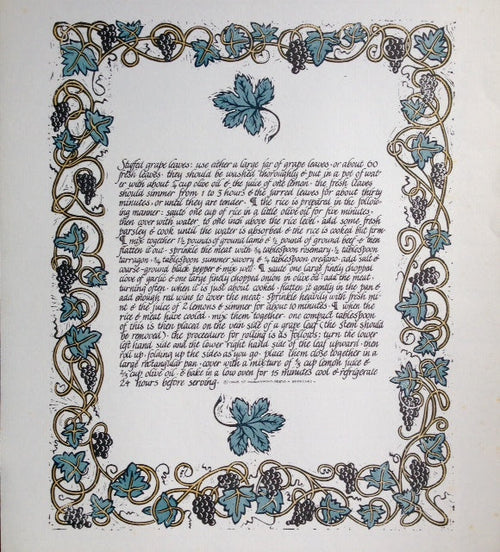 Stuffed grape leaves: use either a large jar of grape leaves · or about 100
fresh leaves · they should be washed thoroughly & put in a pot of wat-
er with about ¼ cup olive oil & the juice of one lemon · the fresh leaves
should simmer from 1 to 3 hours & the jarred leaves for about thirty
minutes · or until they are tender · ¶ the rice is prepared in the follow-
ing manner: sauté one cup of rice in a little olive oil for five minutes ·
then cover with water to one inch above the rice level · add some fresh
parsley & cook until the water is absorbed & the rice is cooked but firm
¶ mix together 1½ pounds of ground lamb & ½ pound of ground beef & then
flatten it out · sprinkle the meat with ¾ tablespoon rosemary · ½ tablespoon
tarragon · ¼ tablespoon summer savory & ¼ tablespoon oregano · add salt &
coarse-ground black pepper & mix well · ¶ sauté one large finely chopped
clove of garlic & one large finely chopped onion in olive oil · add the meat ·
turning often · when it is just about cooked · flatten it gently in the pan &
add enough red wine to cover the meat · sprinkle heavily with fresh mi-
nt & the juice of 2 lemons & simmer for about 10 minutes · ¶ when the
rice & meat have cooled · mix them together · one compact tablespoon
of this is then placed on the vein side of a grape leaf (the stem should
be removed) · the procedure for rolling is as follows: turn the lower
left hand side and the lower right hand side of the leaf upward · then
roll up · folding up the sides as you go · place them close together in a
large rectangular pan · cover with a mixture of ⅓ cup lemon juice &
⅔ cup olive oil · & bake in a low oven for 15 minutes cool & refrigerate
24 hours before serving ·